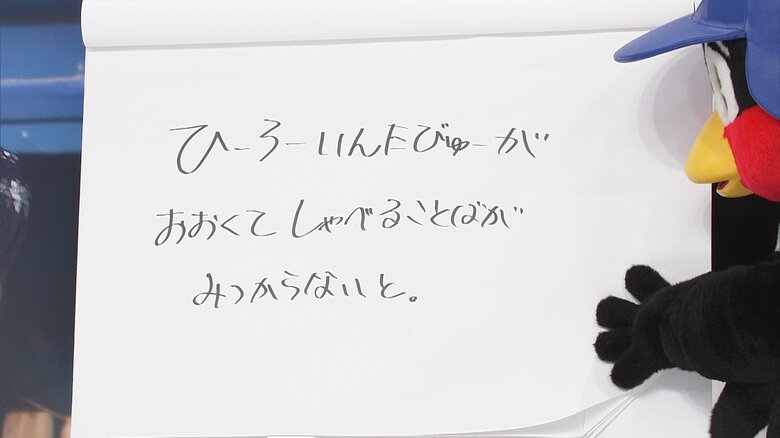 ひーろーいんたびゅーが
おおくてしゃべることばが
みつからないと。